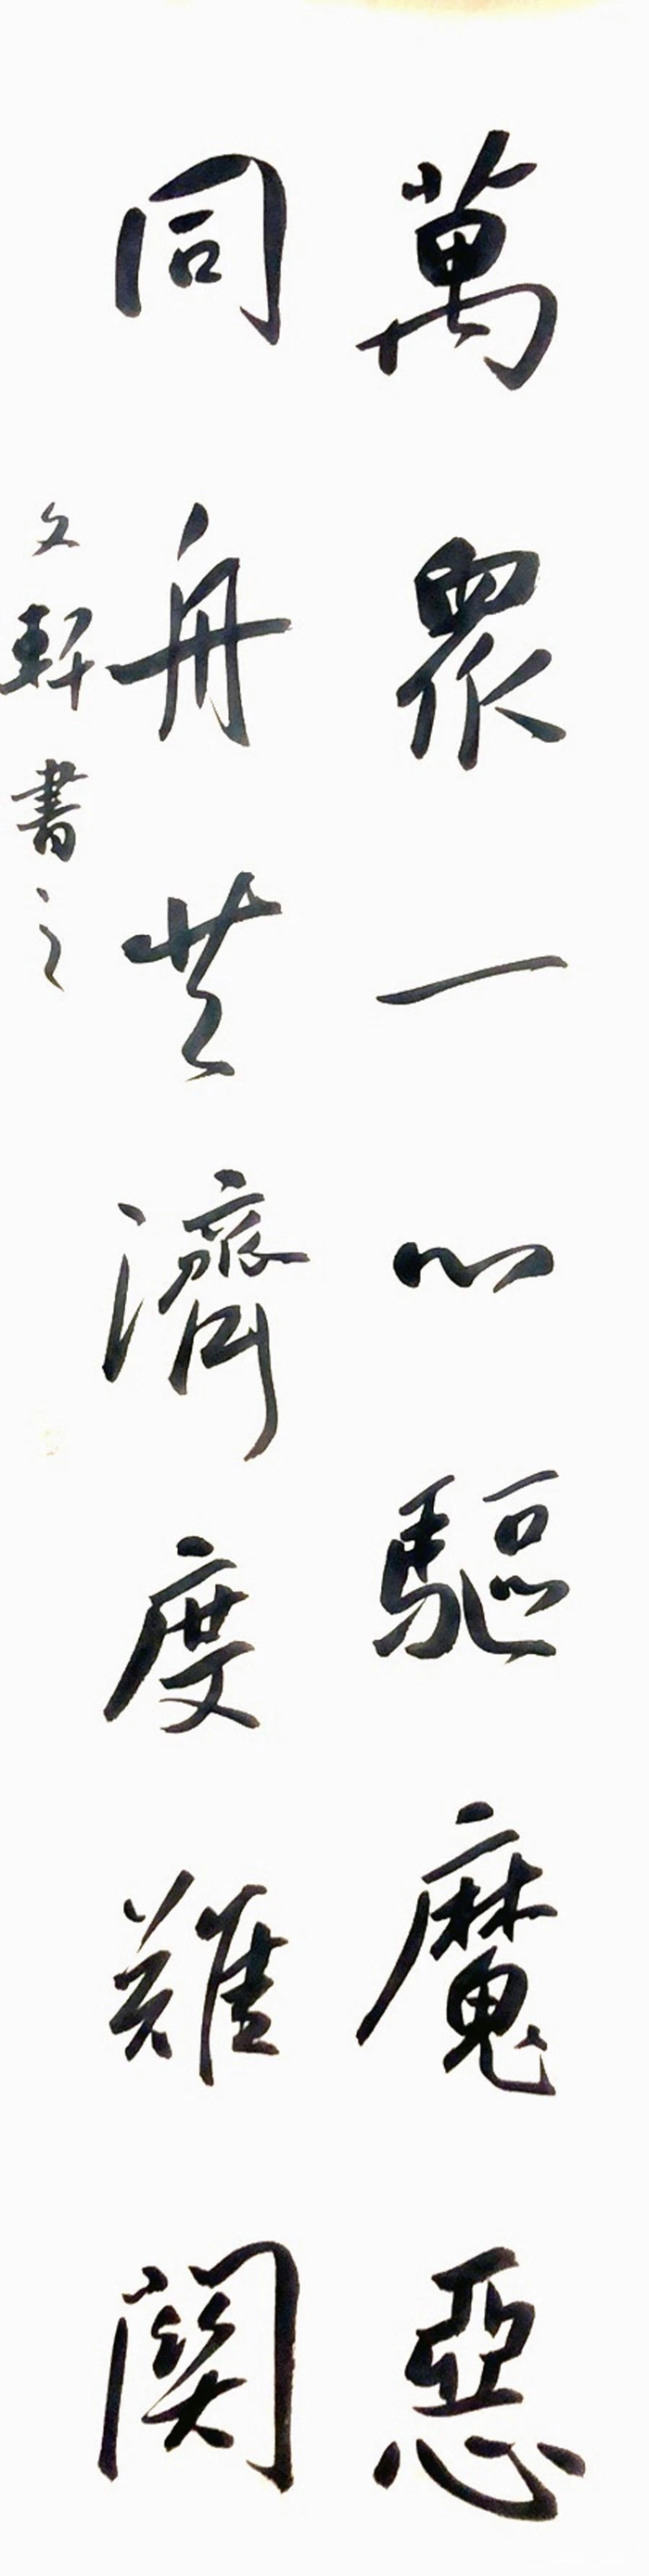 萬眾一心驅魔惡
同舟共濟度難関
文軒書之